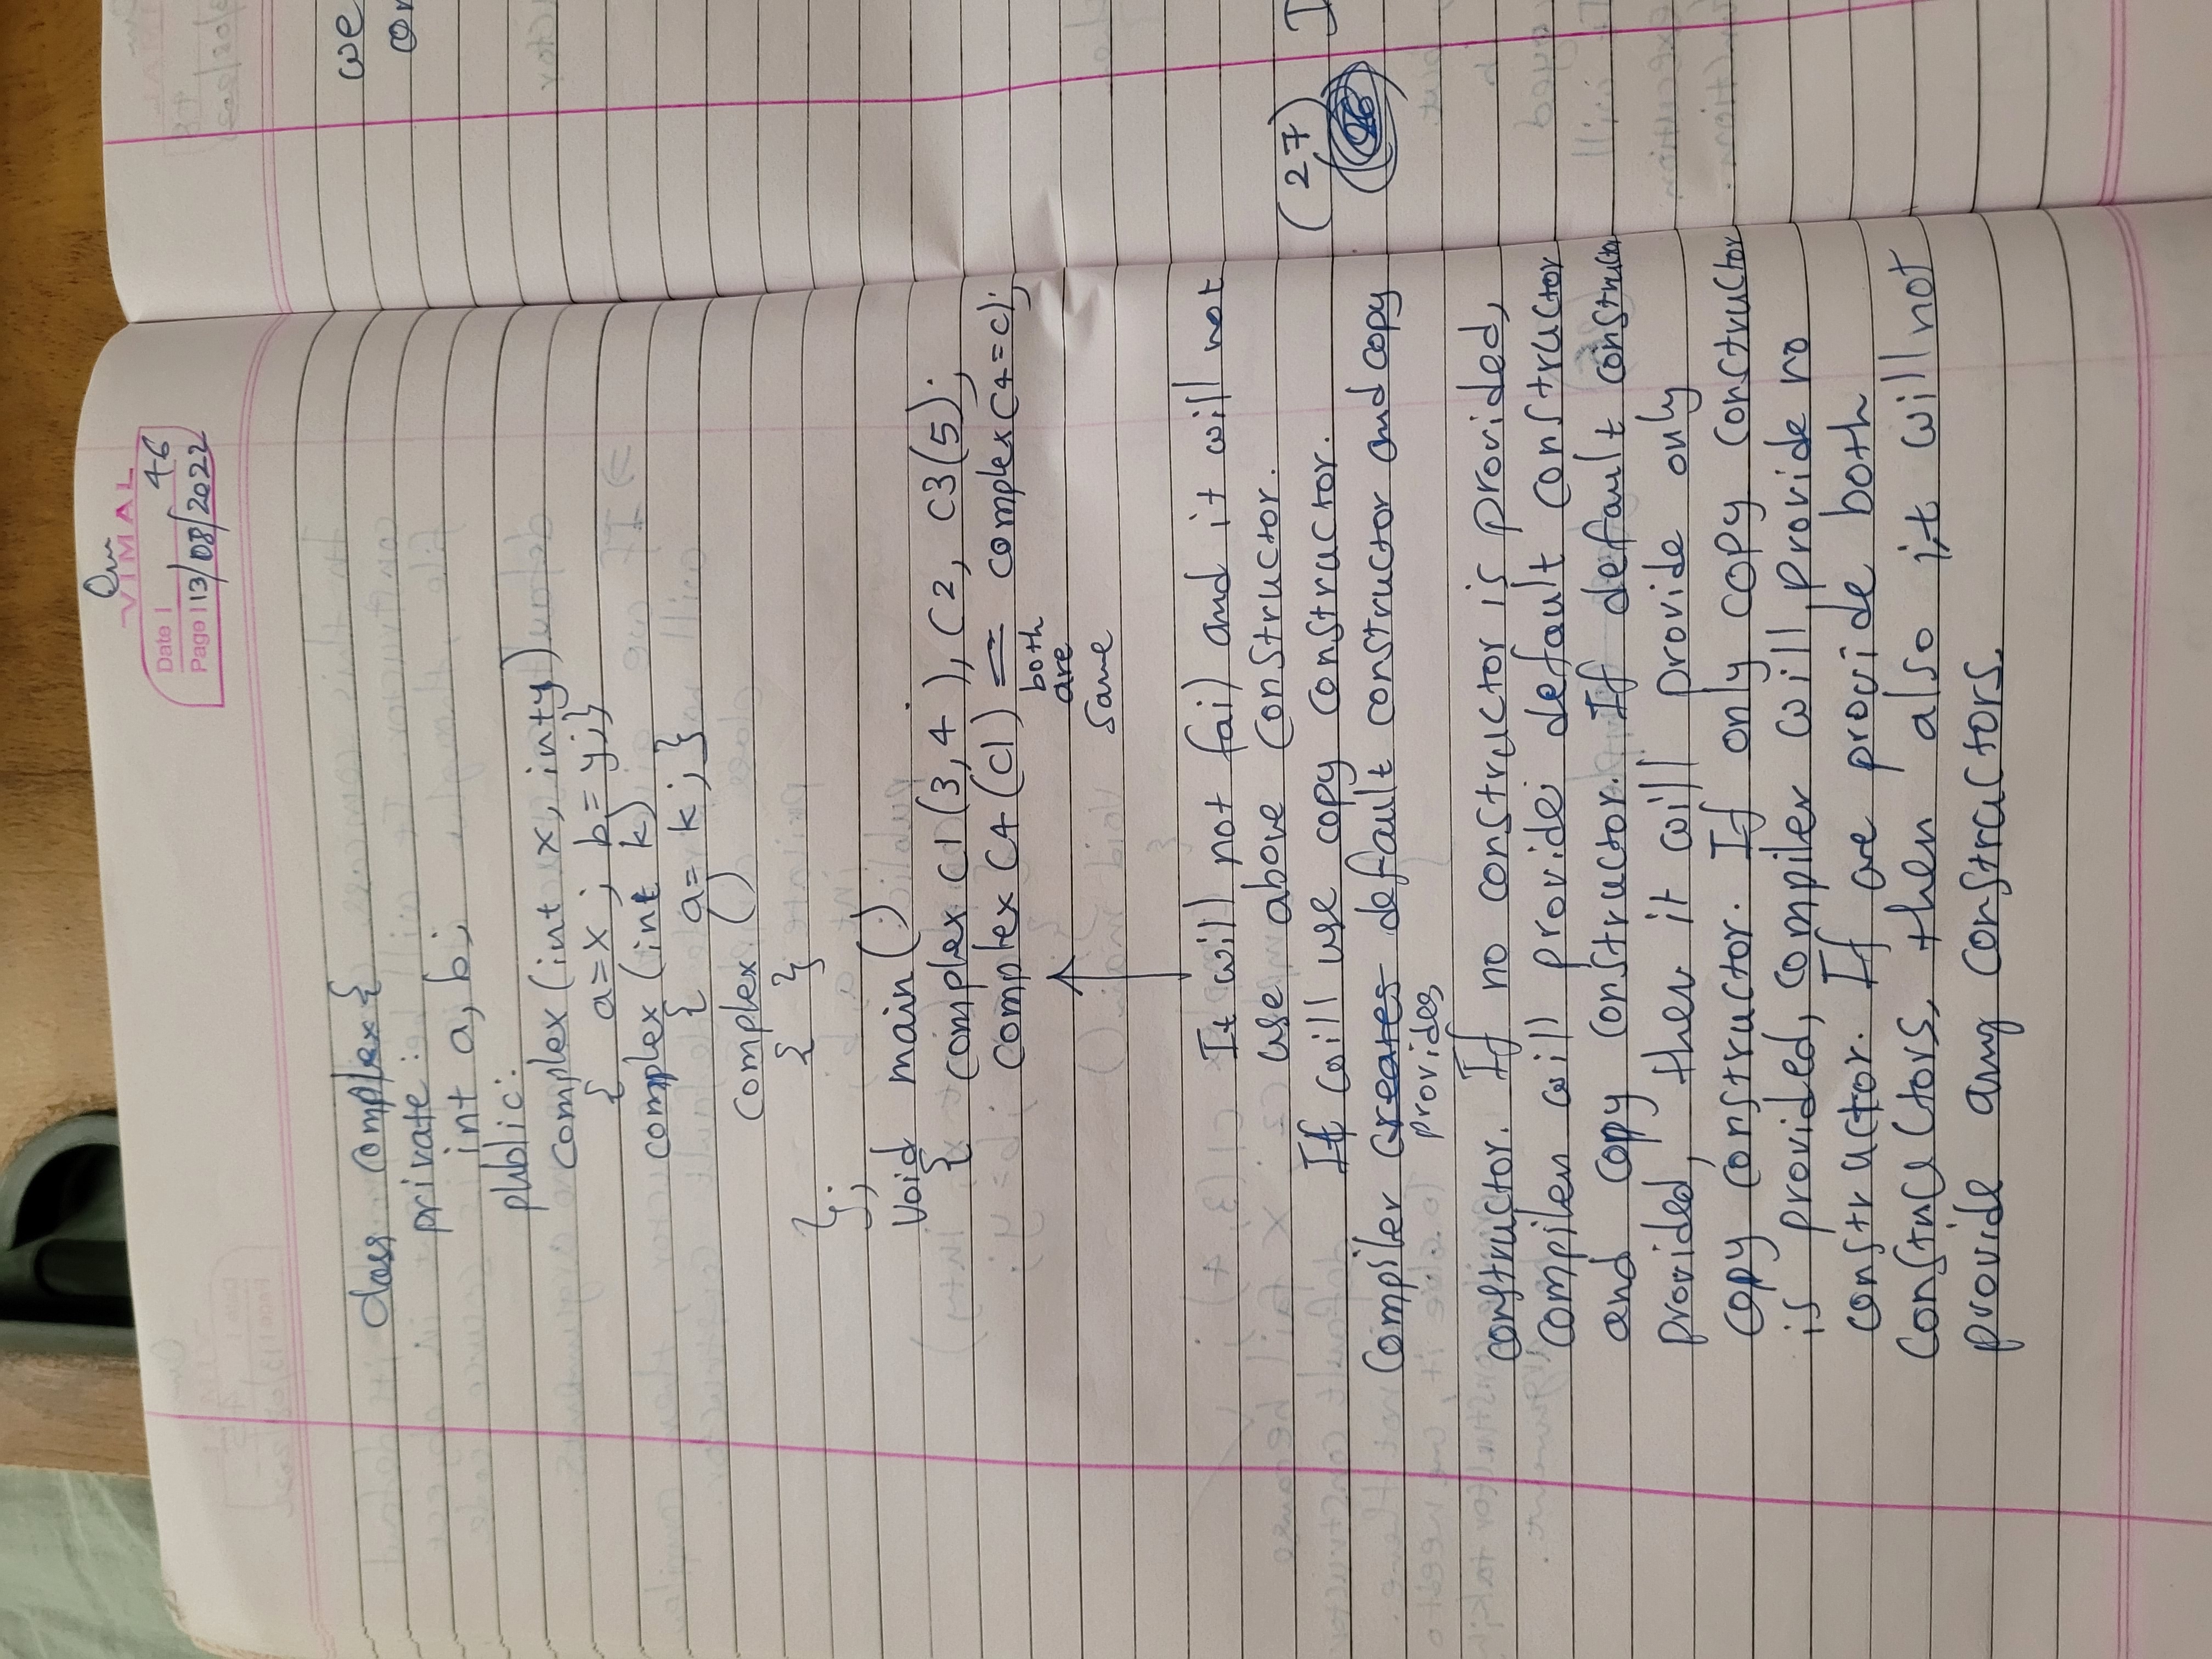 Om
VIMAL
Date | 46
Page | 13/08/2022
class complex {
private :
int a, b;
public:
complex (int x, int y)
{ a=x ; b= y;}
complex (int k)
{ a= k ; }
complex ()
{ }
};
void main()
{ complex C1 (3,4 ), C2, C3(5);
complex C4 (C1) = complex C4 = C1;
both
are
same
It will not fail and it will not
use above constructor.
It will use copy constructor.
Compiler creates default constructor and copy
provides
constructor. If no constructor is provided,
compiler will provide default constructor
and copy constructor. If default constructor
provided, then it will provide only
copy constructor. If only copy constructor
is provided, compiler will provide no
constructor. If we provide both
constructors, then also it will not
provide any constructors.
we
(27) I
26